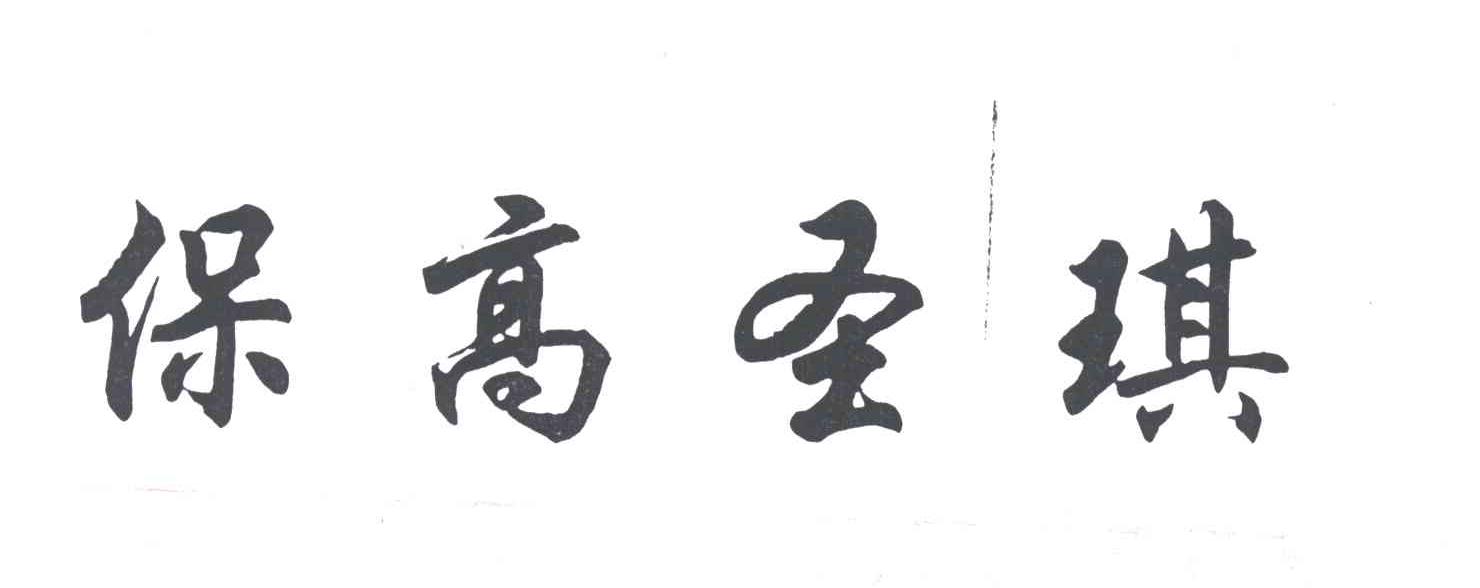 保高圣琪